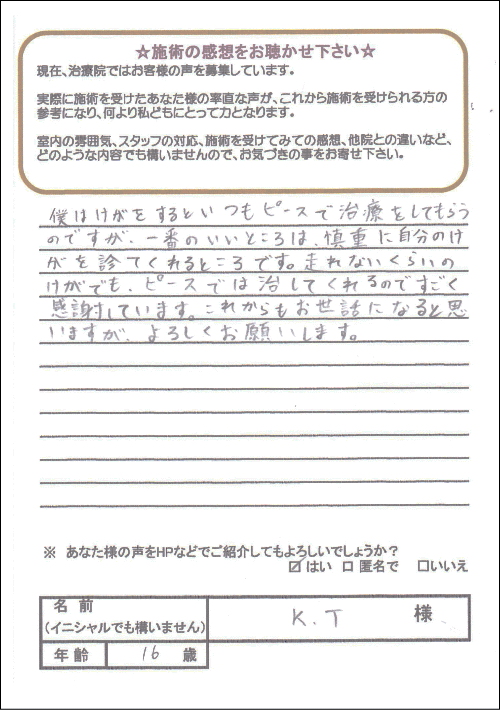 ☆施術の感想をお聴かせ下さい☆
現在、治療院ではお客様の声を募集しています。
実際に施術を受けたあなた様の率直な声が、これから施術を受けられる方の
参考になり、何より私どもにとって力となります。
室内の雰囲気、スタッフの対応、施術を受けてみての感想、他院との違いなど、
どのような内容でも構いませんので、お気づきの事をお寄せ下さい。
僕はけがをするといつもピースで治療をしてもらう
のですが、一番のいいところは、慎重に自分のけ
がを診てくれるところです。走れないくらいの
けがでも、ピースでは治してくれるのですごく
感謝しています。これからもお世話になると思
いますが、よろしくお願いします。
※ あなた様の声をHPなどでご紹介してもよろしいでしょうか?
☑はい ☐匿名で ☐いいえ
名前 K.T 様
(イニシャルでも構いません)
年齢 16 歳